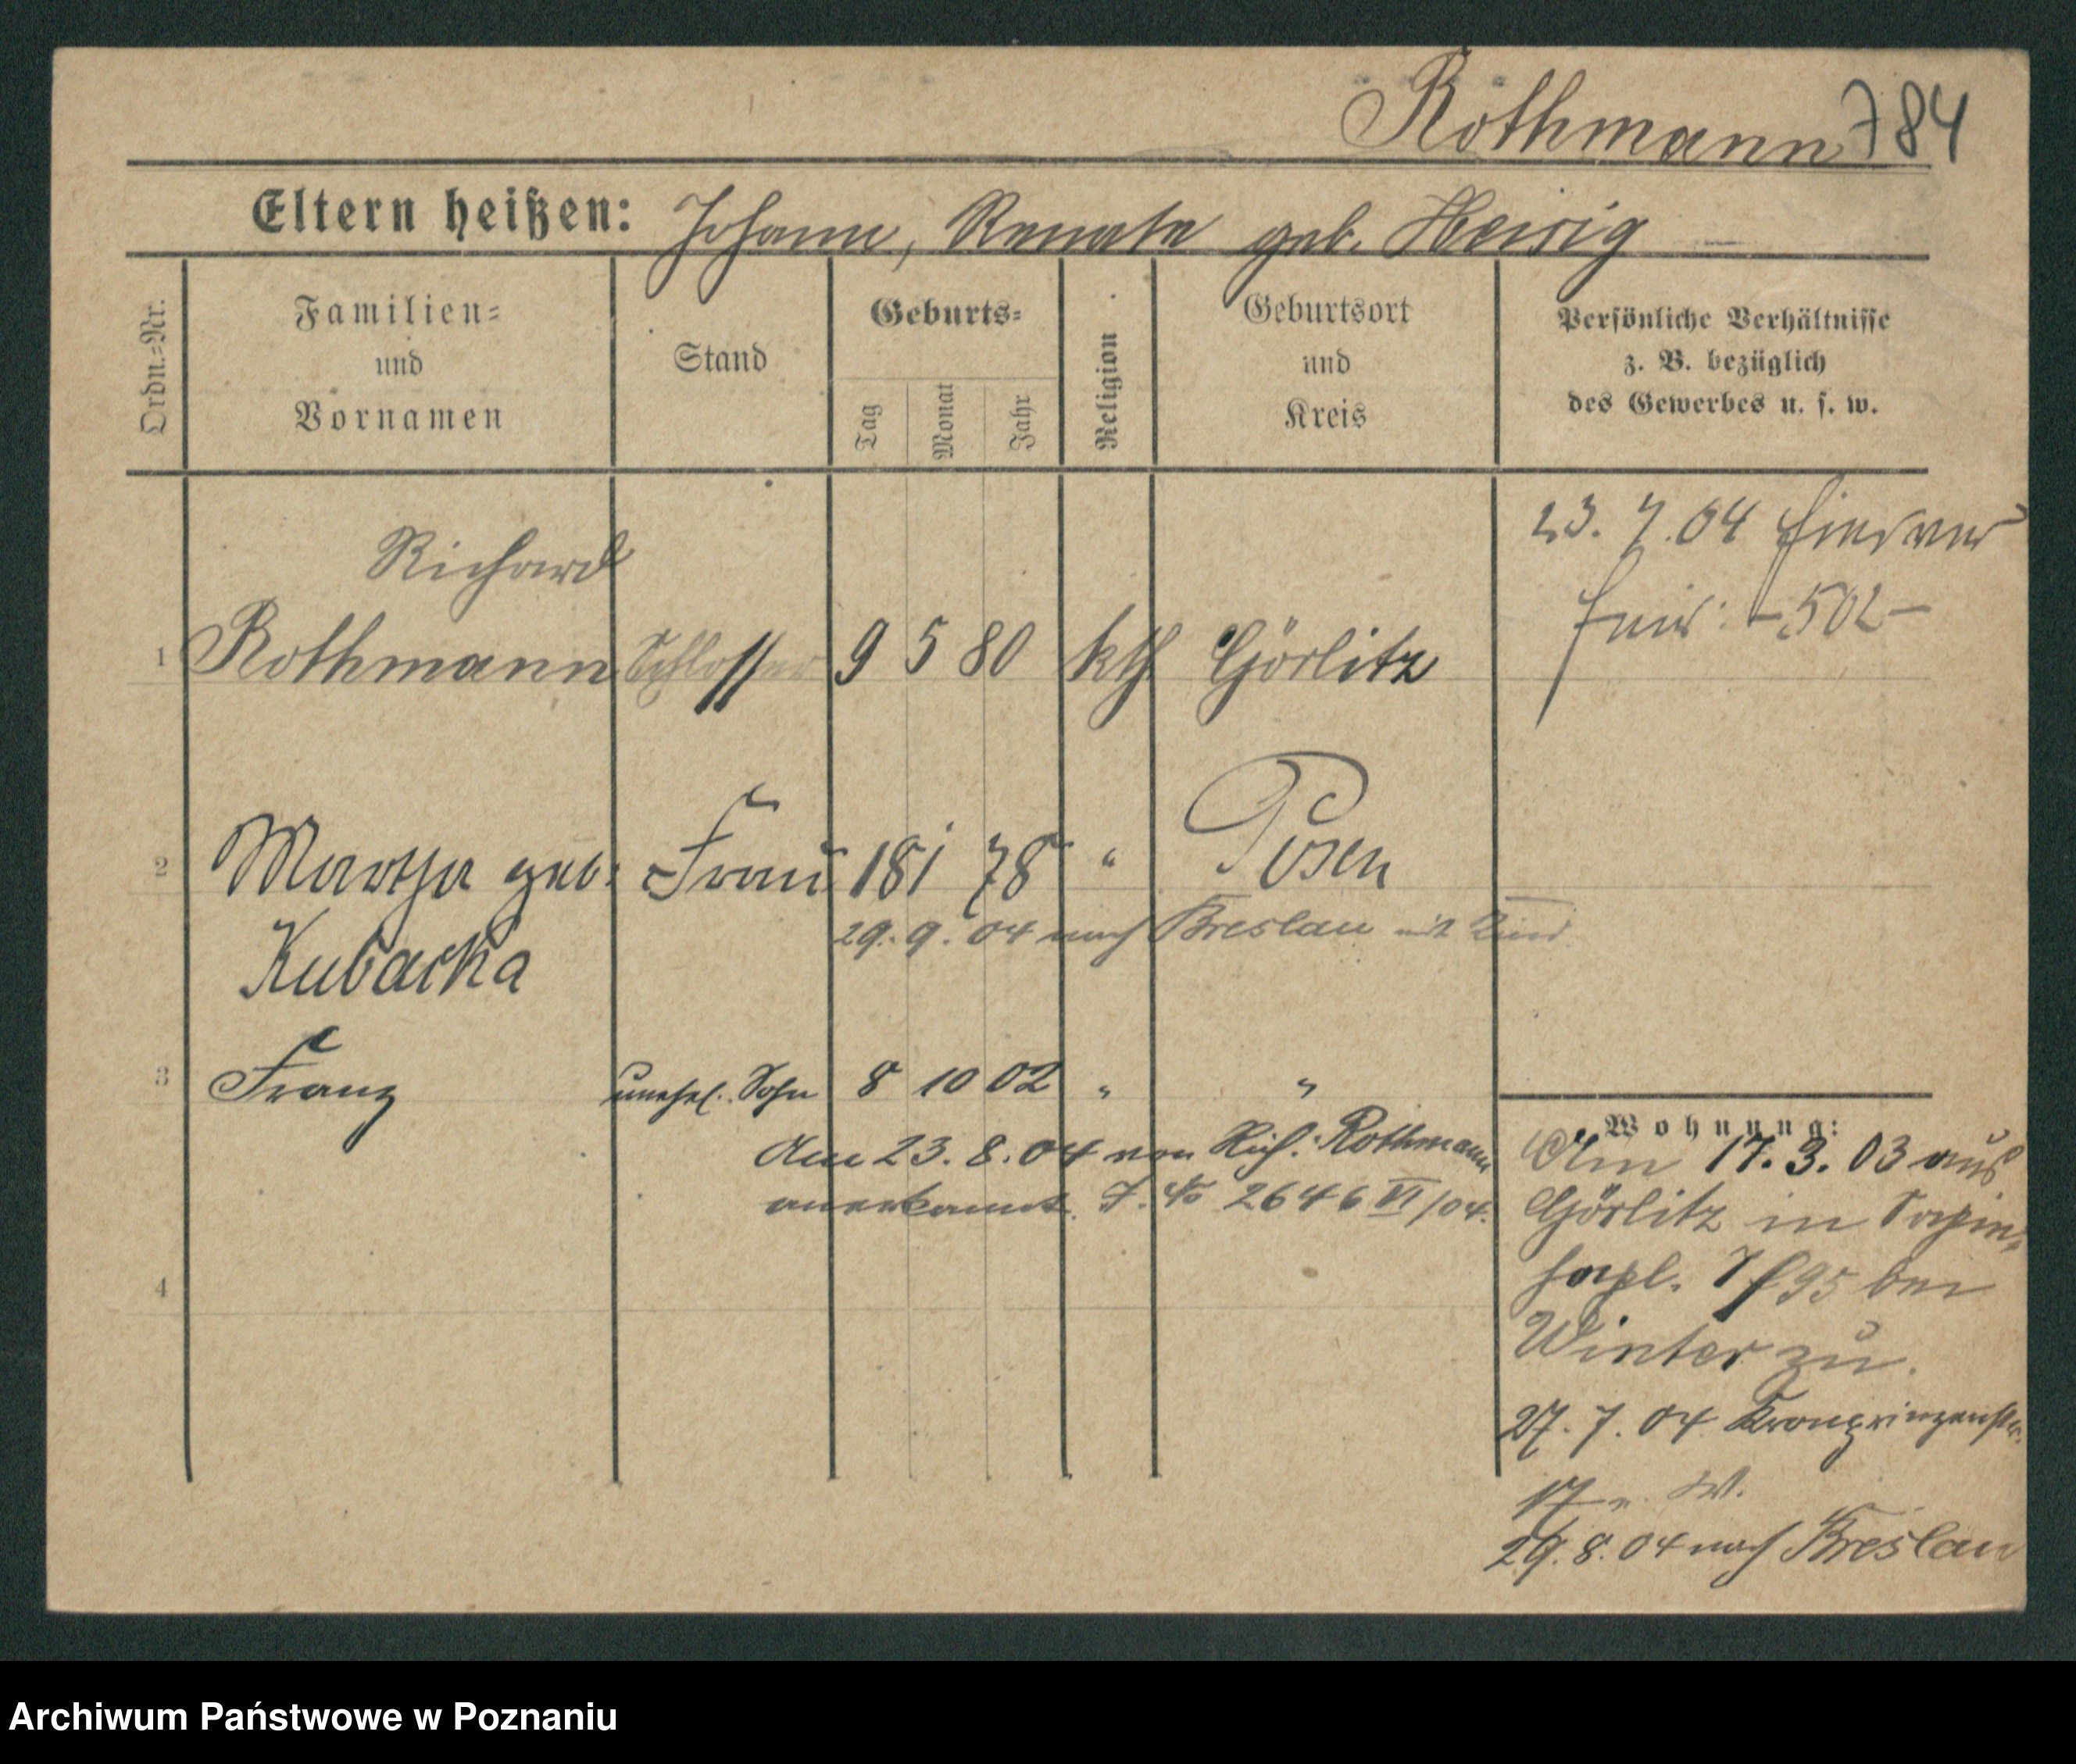 Rothmann 784
Eltern heißen: Johann, Renate geb. Heisig
Ordn.=Nr.
Familien=
und
Vornamen
Stand
Geburts=
Tag
Monat
Jahr
Religion
Geburtsort
und
Kreis
Persönliche Verhältnisse
z. B. bezüglich
des Gewerbes u. s. w.
23. 7. 04
- 502 -
Richard
1 Rothmann Schlosser 9 5 80 kth Görlitz
2 Martha geb. Frau 18 1 78 " Posen
29. 9. 04 nach Breslau mit Kind.
Kubacka
3 Franz unehel. Sohn 8 10 02 " "
Am 23. 8. 04 von Rich. Rothmann
anerkannt. J. No 2646 VI/04.
4
Wohnung:
Am 17. 3. 03 aus
Görlitz in
95 bei
Winter zu.
27. 7. 04 Kronprinzenstr.
17 W.
29. 8. 04 nach Breslau
Archiwum Państwowe w Poznaniu